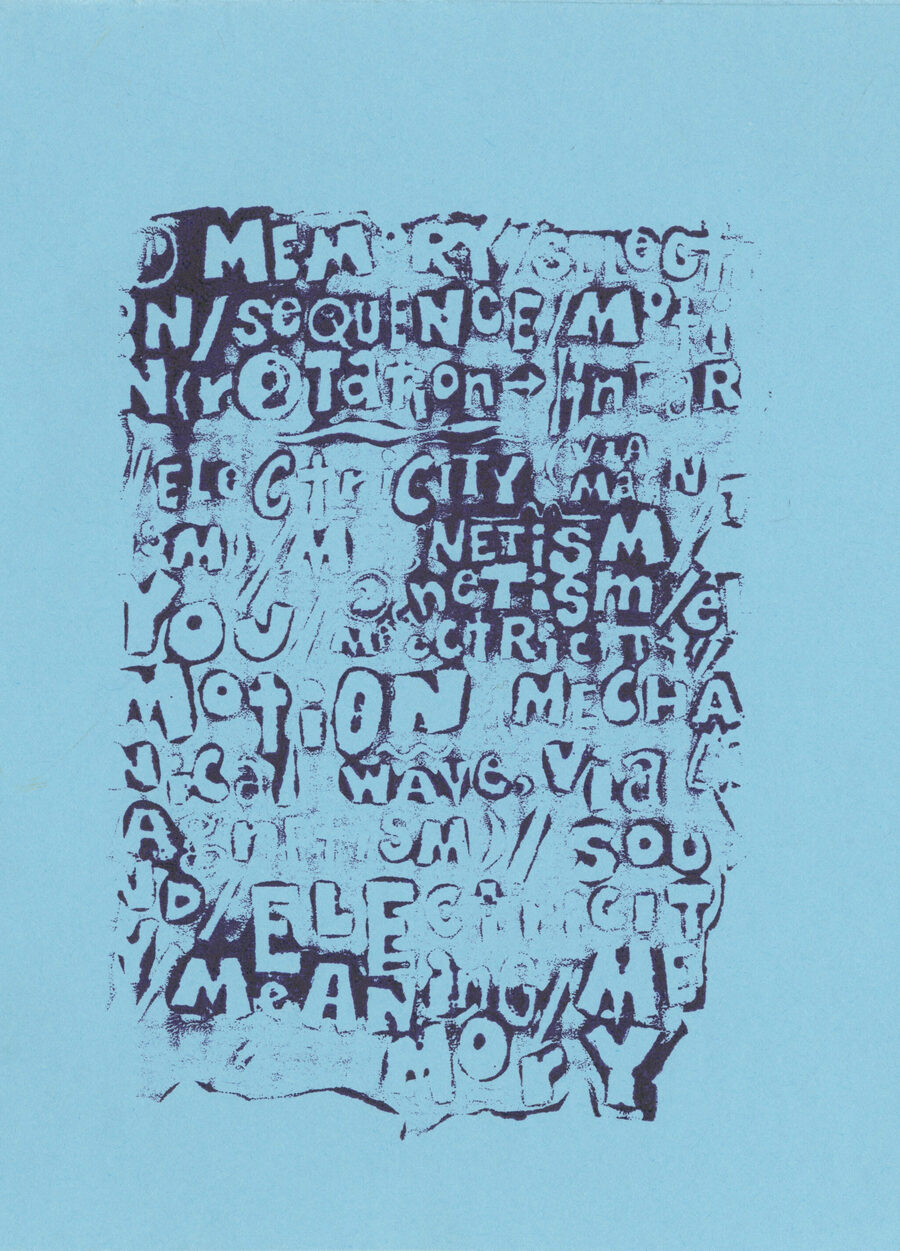 D MEMORY/
N/seQUENCE/MOti
N/rOTation→/in
/EleCtriCITY (VIA
NETiSM/
YOU // netiSM/e
ECtRicITY//
MOtiON MECHA
NiCal WAVE, Via
SM)// SOU
ND/ELECtriCIT
Y//MeANING/ME
mOrY